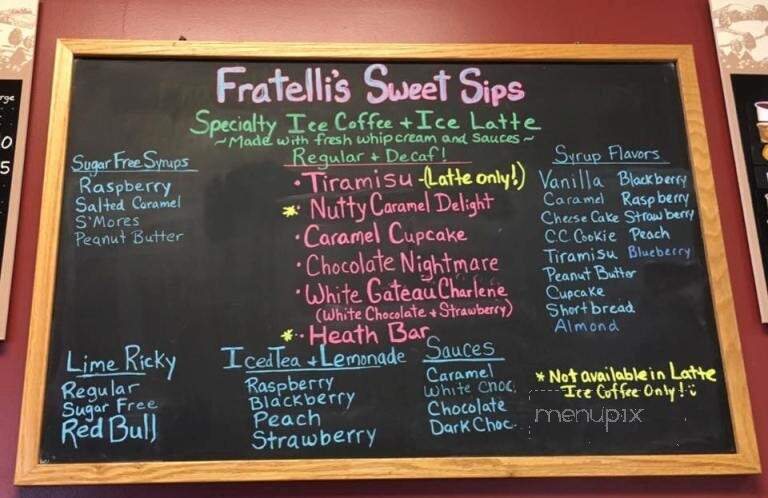 Fratelli's Sweet Sips
Specialty Ice Coffee + Ice Latte
~Made with fresh whip cream and sauces~
Regular + Decaf!
• Tiramisu -(Latte only!)
* Nutty Caramel Delight
• Caramel Cupcake
• Chocolate Nightmare
• White Gateau Charlene
(White Chocolate + Strawberry)
*• Heath Bar
Sugar Free Syrups
Raspberry
Salted Caramel
S'Mores
Peanut Butter
Syrup Flavors
Vanilla Blackberry
Caramel Raspberry
Cheese Cake Strawberry
C.C. Cookie Peach
Tiramisu Blueberry
Peanut Butter
Cupcake
Shortbread
Almond
Lime Ricky
Regular
Sugar Free
Red Bull
Iced Tea + Lemonade
Raspberry
Blackberry
Peach
Strawberry
Sauces
Caramel
White Choc.
Chocolate
Dark Choc.
* Not available in Latte
Ice Coffee Only!
menupix
0
5